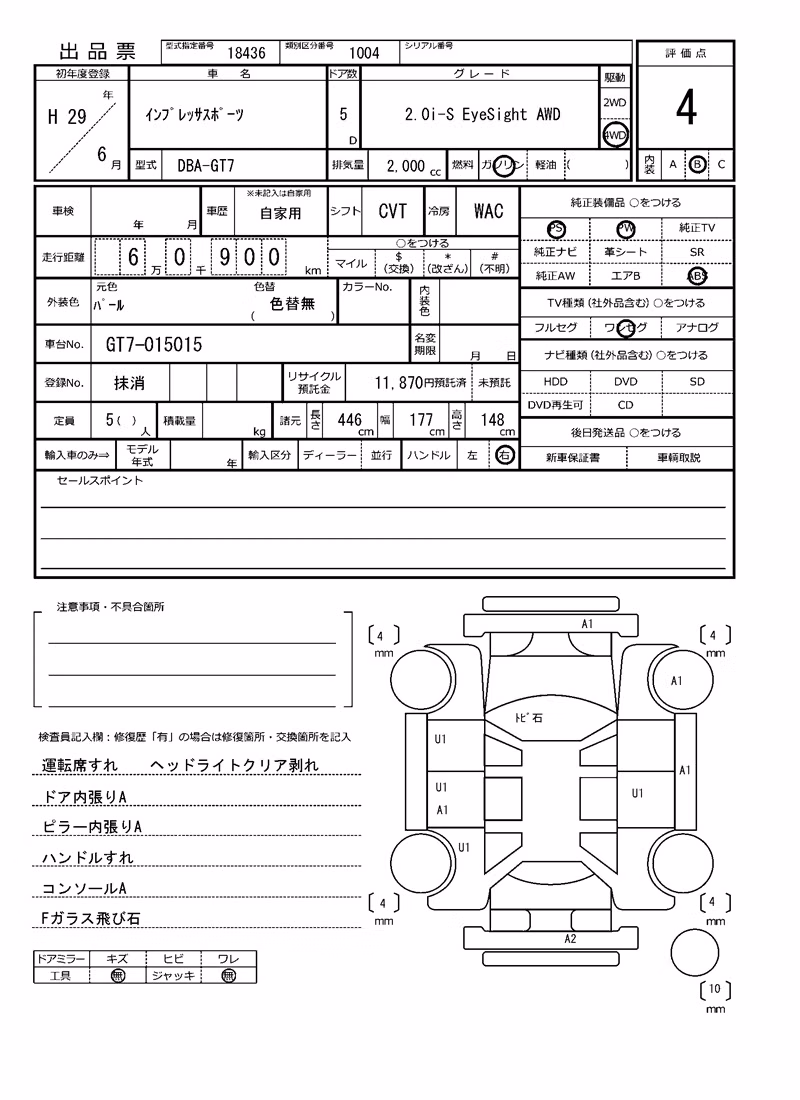 出品票 型式指定番号 18436 類別区分番号 1004 シリアル番号
評価点
4
内装 A B C
初年度登録 車名 ドア数 グレード 駆動
H 29 年 6 月 インプレッサスポーツ 5 D 2.0i-S EyeSight AWD 2WD 4WD
型式 DBA-GT7 排気量 2,000 cc 燃料 ガソリン 軽油 ( )
車検 年 月 車歴 ※未記入は自家用 自家用 シフト CVT 冷房 WAC
走行距離 6 万 0 千 9 0 0 km ○をつける
マイル $ (交換) * (改ざん) # (不明)
外装色 元色 パール 色替 ( 色替無 ) カラーNo. 内装色
車台No. GT7-015015 名変期限 月 日
登録No. 抹消 リサイクル預託金 11,870円預託済 未預託
定員 5 ( ) 人 積載量 kg 諸元 長さ 446 cm 幅 177 cm 高さ 148 cm
輸入車のみ⇒ モデル年式 年 輸入区分 ディーラー 並行 ハンドル 左 右
純正装備品 ○をつける
PS PW 純正TV
純正ナビ 革シート SR
純正AW エアB ABS
TV種類(社外品含む) ○をつける
フルセグ ワンセグ アナログ
ナビ種類(社外品含む) ○をつける
HDD DVD SD
DVD再生可 CD
後日発送品 ○をつける
新車保証書 車輌取説
セールスポイント
注意事項・不具合箇所
検査員記入欄：修復歴「有」の場合は修復箇所・交換箇所を記入
運転席すれ ヘッドライトクリア剥れ
ドア内張りA
ピラー内張りA
ハンドルすれ
コンソールA
Fガラス飛び石
ドアミラー キズ ヒビ ワレ
工具 無 ジャッキ 無
A1
[4] mm
[4] mm
A1
トビ石
U1
A1
U1
A1
U1
U1
[4] mm
[4] mm
A2
[10] mm